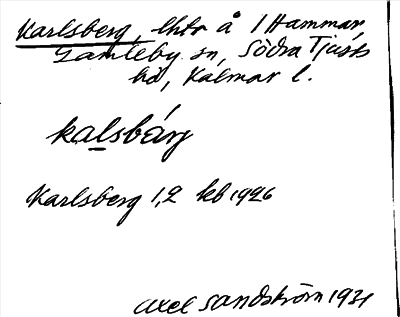 Karlsberg, lhtr å 1 Hammar,
Gamleby sn, Södra Tjusts
hd, Kalmar l.
kalsbárj
Karlsberg 1,2 kb 1926
Axel Sandström 1931